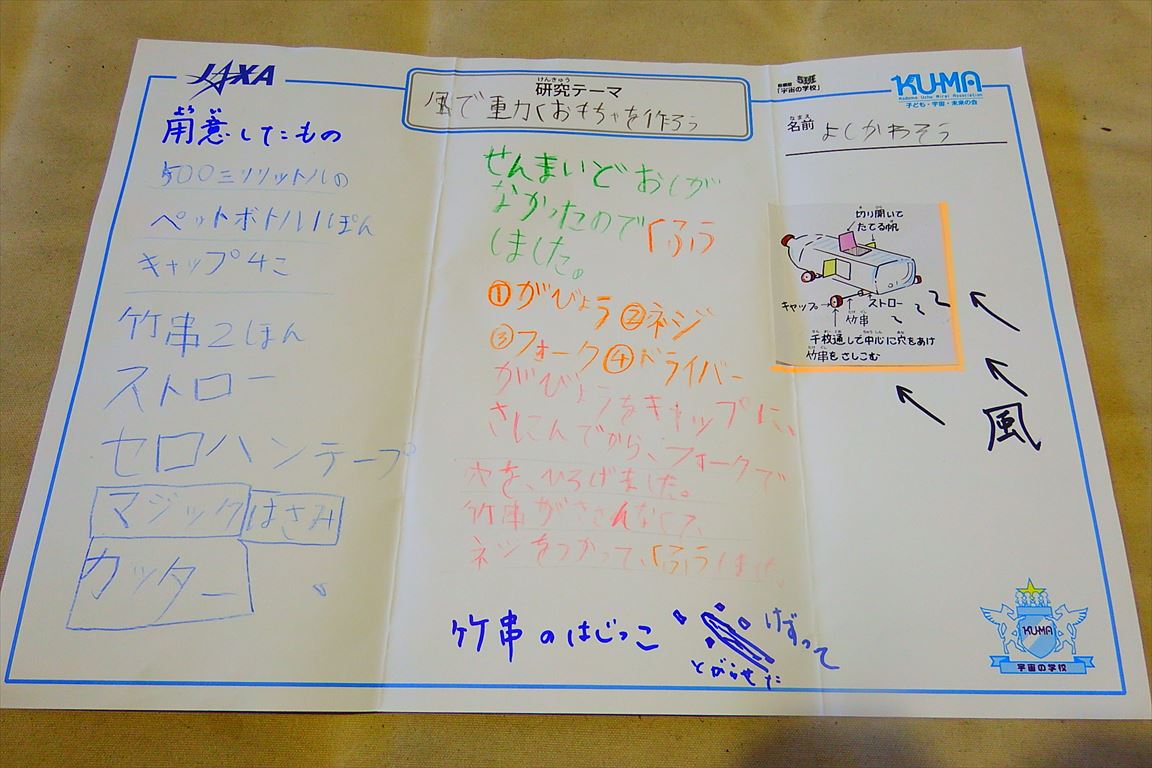 JAXA
けんきゅう
研究テーマ
風で重力くおもちゃを作ろう
「宇宙の学校」
KU-MA
Kodomo Uchu Mirai Association
子ども・宇宙・未来の会
なまえ
名前 よしかわそう
ようい
用意したもの
500ミリリットルの
ペットボトル1ぽん
キャップ4こ
竹串2ほん
ストロー
セロハンテープ
マジック はさみ
カッター
せんまいどおしが
なかったので「くふう
しました。
①がびょう②ネジ
③フォーク④ドライバー
がびょうをキャップに、
さにんでから、フォークで
穴を、ひろげました。
竹串がささんなくて、
ネジをつかって、くふうしました
竹串のはじっこ
けずって
とがらせた
切り開いて
たてる帆
キャップ
ストロー
竹串
千枚通しで中心に穴をあけ
竹串をさしこむ
風
KU-MA
宇宙の学校